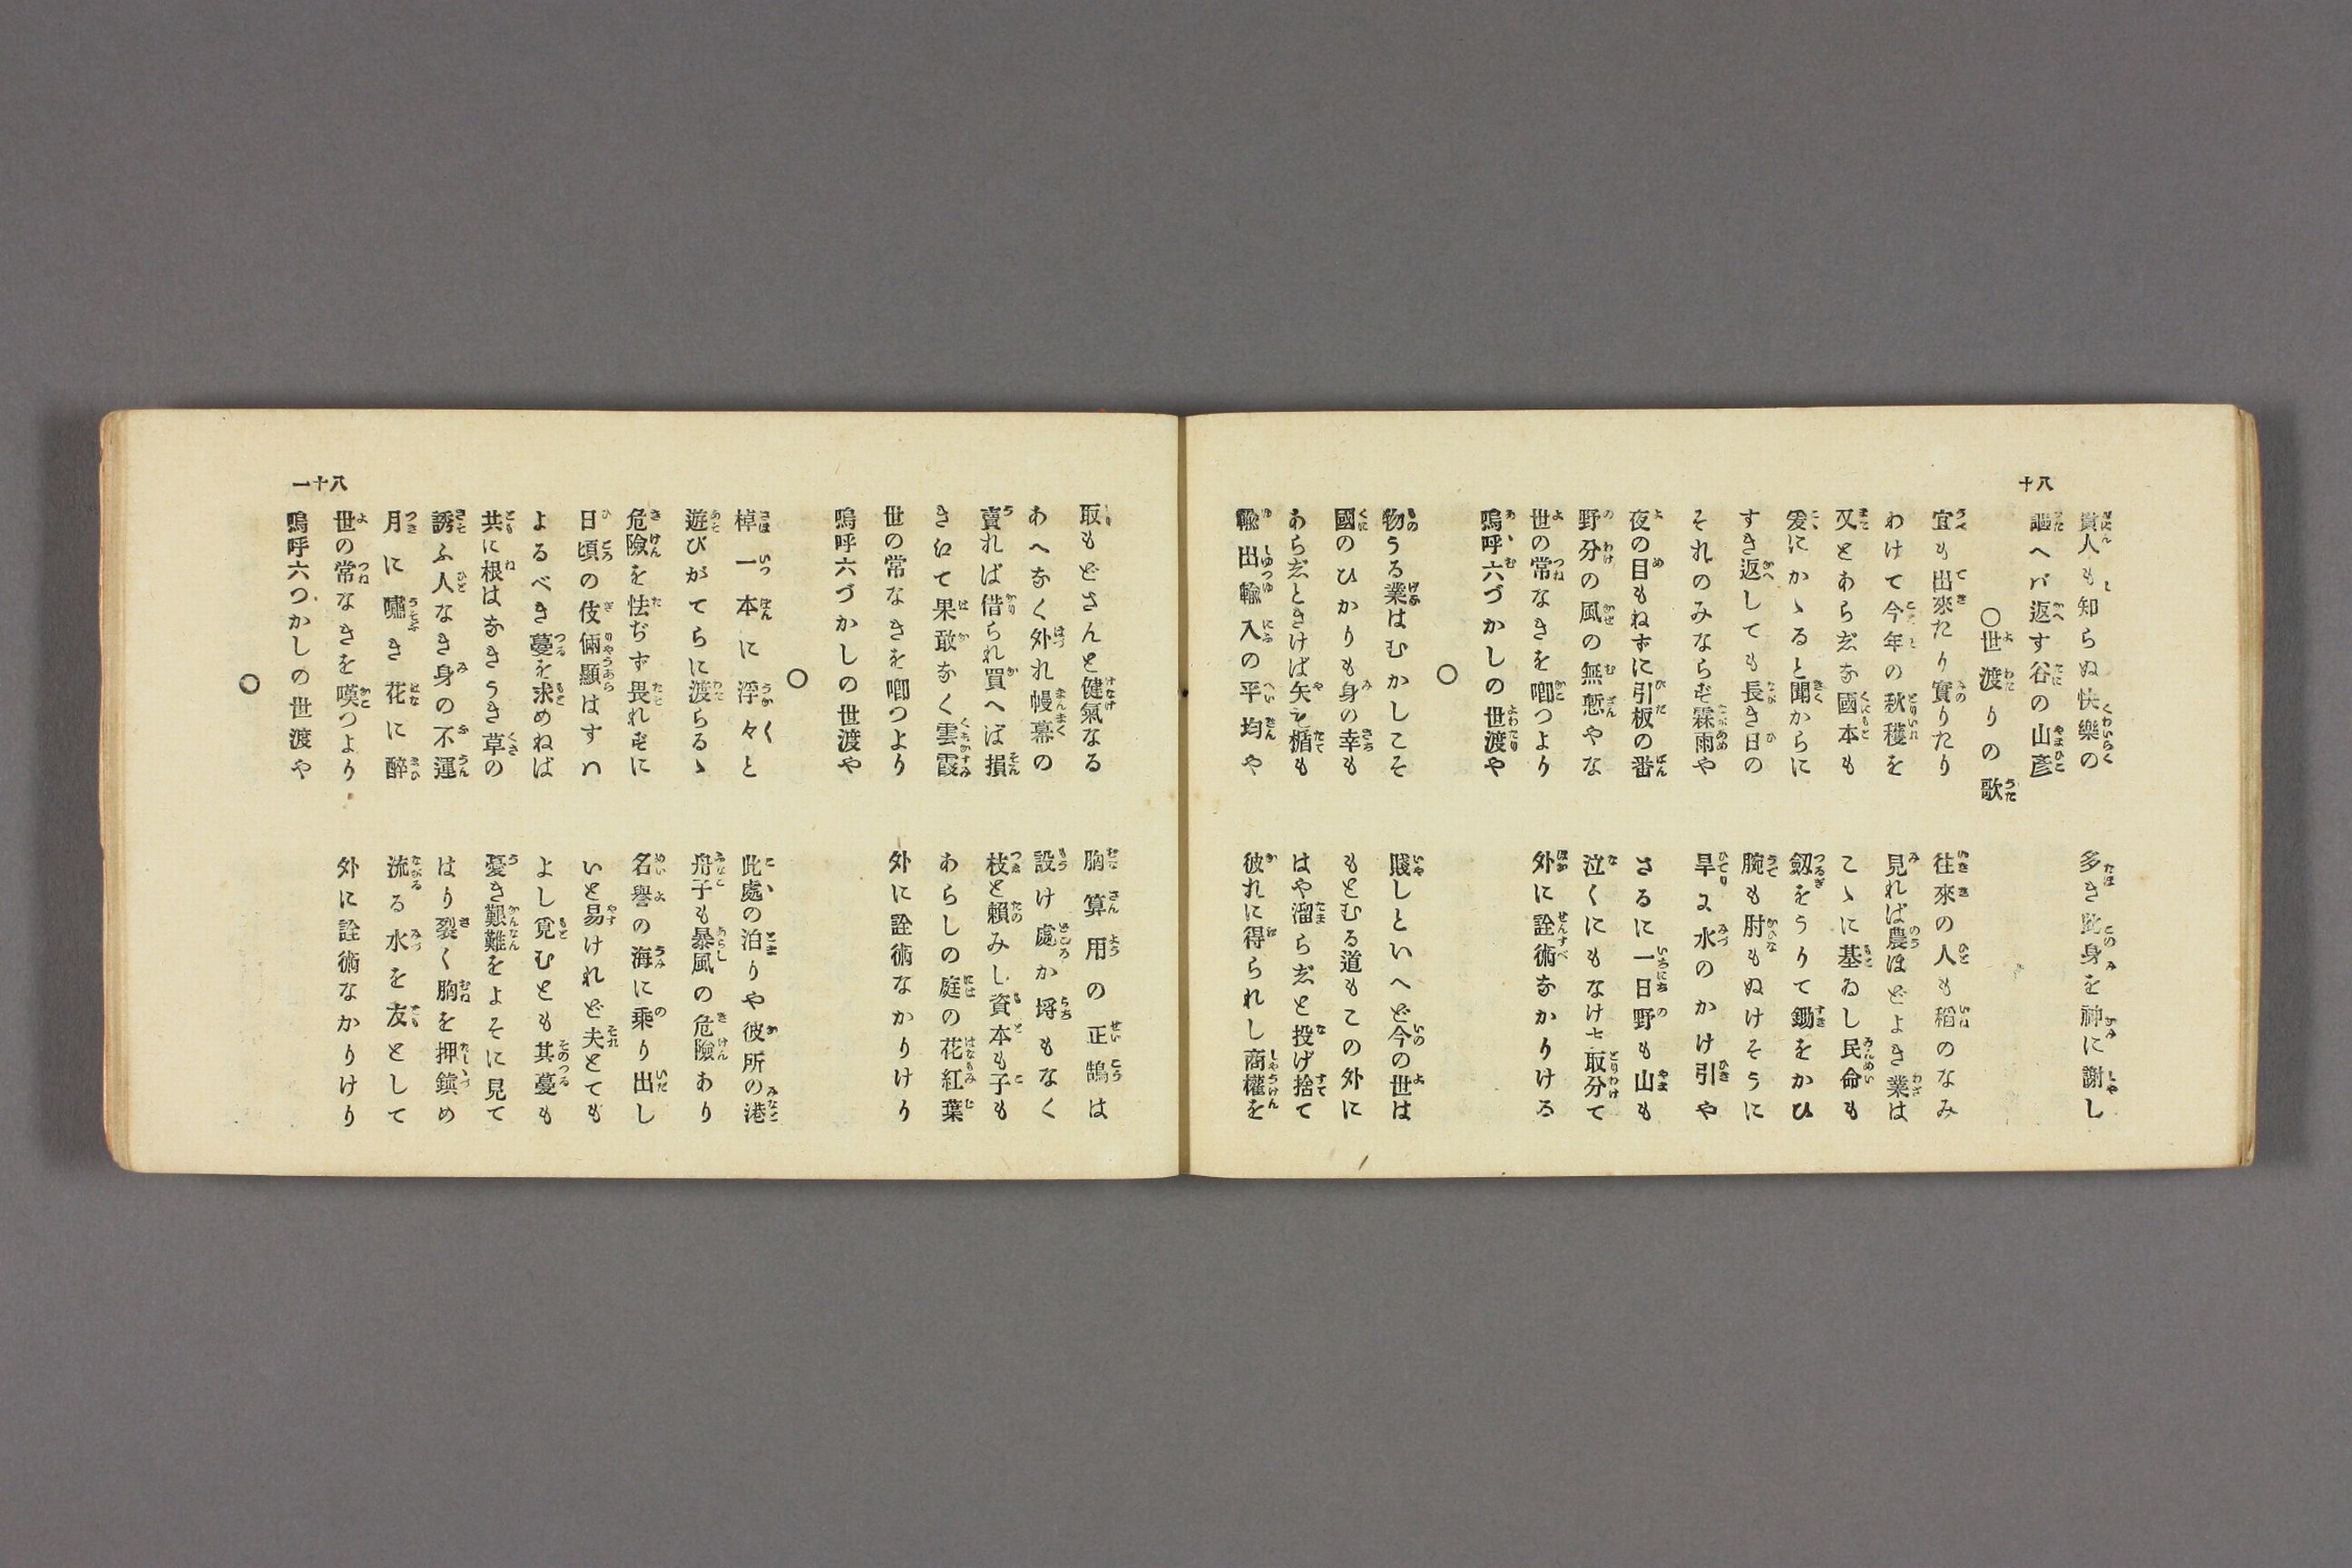 八十
貴人も知らぬ快樂の　多き此身を神に謝し
謳へバ返す谷の山彦
〇世渡りの歌
宜も出來たり實りたり　往來の人も稻のなみ
わけて今年の秋穫を　見れば農ほどよき業は
又とあらざな國本も　こゝに基ゐし民命も
爰にかゝると聞からに　劔をうりて鋤をかひ
すき返しても長き日の　腕も肘もぬけそうに
それのみならず霖雨や　旱に水のかけ引や
夜の目もねずに引板の番　さるに一日野も山も
野分の風の無慙やな　泣くにもなけず取分て
世の常なきを喞つより　外に詮術なかりける
嗚呼六づかしの世渡や
〇
物うる業はむかしこそ　賤しといへど今の世は
國のひかりも身の幸も　もとむる道もこの外に
あらざときけば矢を楯も　はや溜らざと投げ捨て
輸出輸入の平均や　彼れに得られし商權を
取もどさんと健氣なる　胸算用の正鵠は
あへなく外れ幔幕の　設け處か埒もなく
賣れば借られ買へば損　枝と頼みし資本も子も
きえて果敢なく雲霞　あらしの庭の花紅葉
世の常なきを喞つより　外に詮術なかりけり
嗚呼六づかしの世渡や
〇
棹一本に浮々と　此處の泊りや彼所の港
遊びがてらに渡らるゝ　舟子も暴風の危險あり
危險を怯ぢず畏れずに　名譽の海に乘り出し
日頃の伎倆顯はすハ　いと易けれど夫とても
よるべき蔓を求めねば　よし覓むとも其蔓も
共に根はなきうき草の　憂き艱難をよそに見て
誘ふ人なき身の不運　はり裂く胸を押鎭め
月に嘯き花に醉　流る水を友として
世の常なきを嘆つより　外に詮術なかりけり
嗚呼六つかしの世渡や
〇
八十一